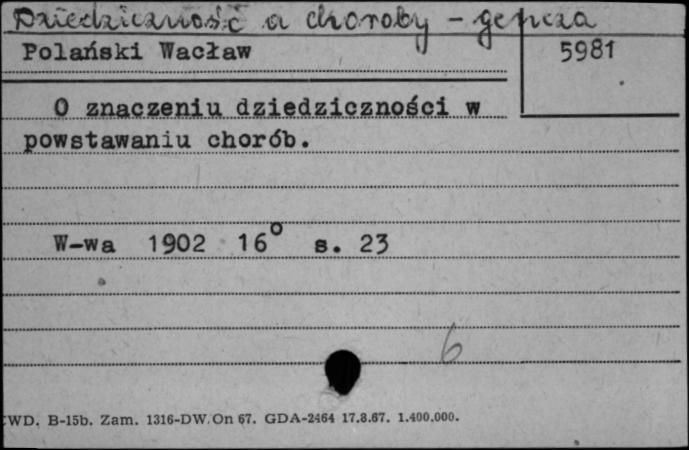 Dziedziczność a choroby - geneza
Polański Wacław
5981
O znaczeniu dziedziczności w
powstawaniu chorób.
W-wa 1902 16° s. 23
6
WD. B-15b. Zam. 1316-DW. On 67. GDA-2464 17.8.67. 1.400.000.